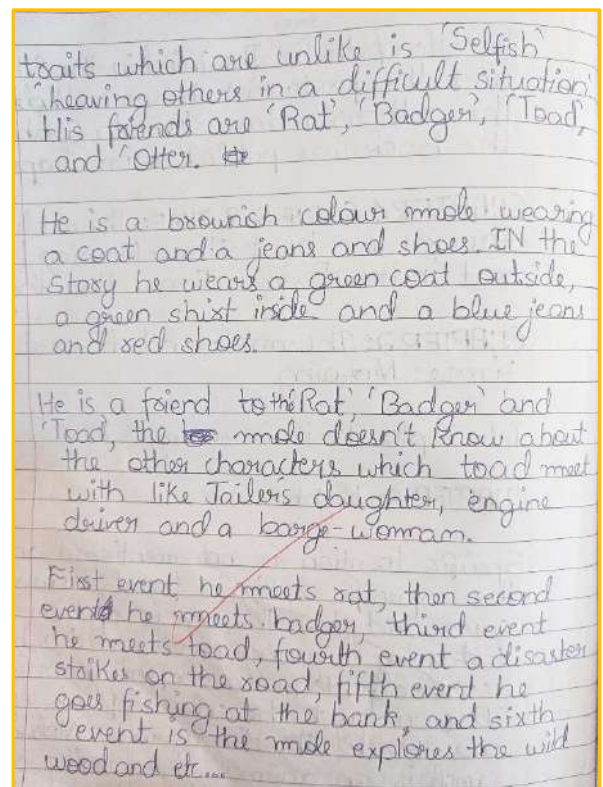 traits which are unlike is 'Selfish'
'heaving others in a difficult situation'
His friends are 'Rat', 'Badger', 'Toad',
and 'Otter.
He is a brownish colour mole wearing
a coat and a jeans and shoes. IN the
story he wears a green coat outside,
a green shirt inside and a blue jeans
and red shoes.
He is a friend to the 'Rat', 'Badger' and
'Toad', the mole doesn't know about
the other characters which toad meet
with like Jailer's daughter, engine
driver and a barge-womman.
First event he meets rat, then second
event he meets badger, third event
he meets toad, fourth event a disaster
strikes on the road, fifth event he
goes fishing at the bank, and sixth
event is the mole explores the wild
wood and etc...